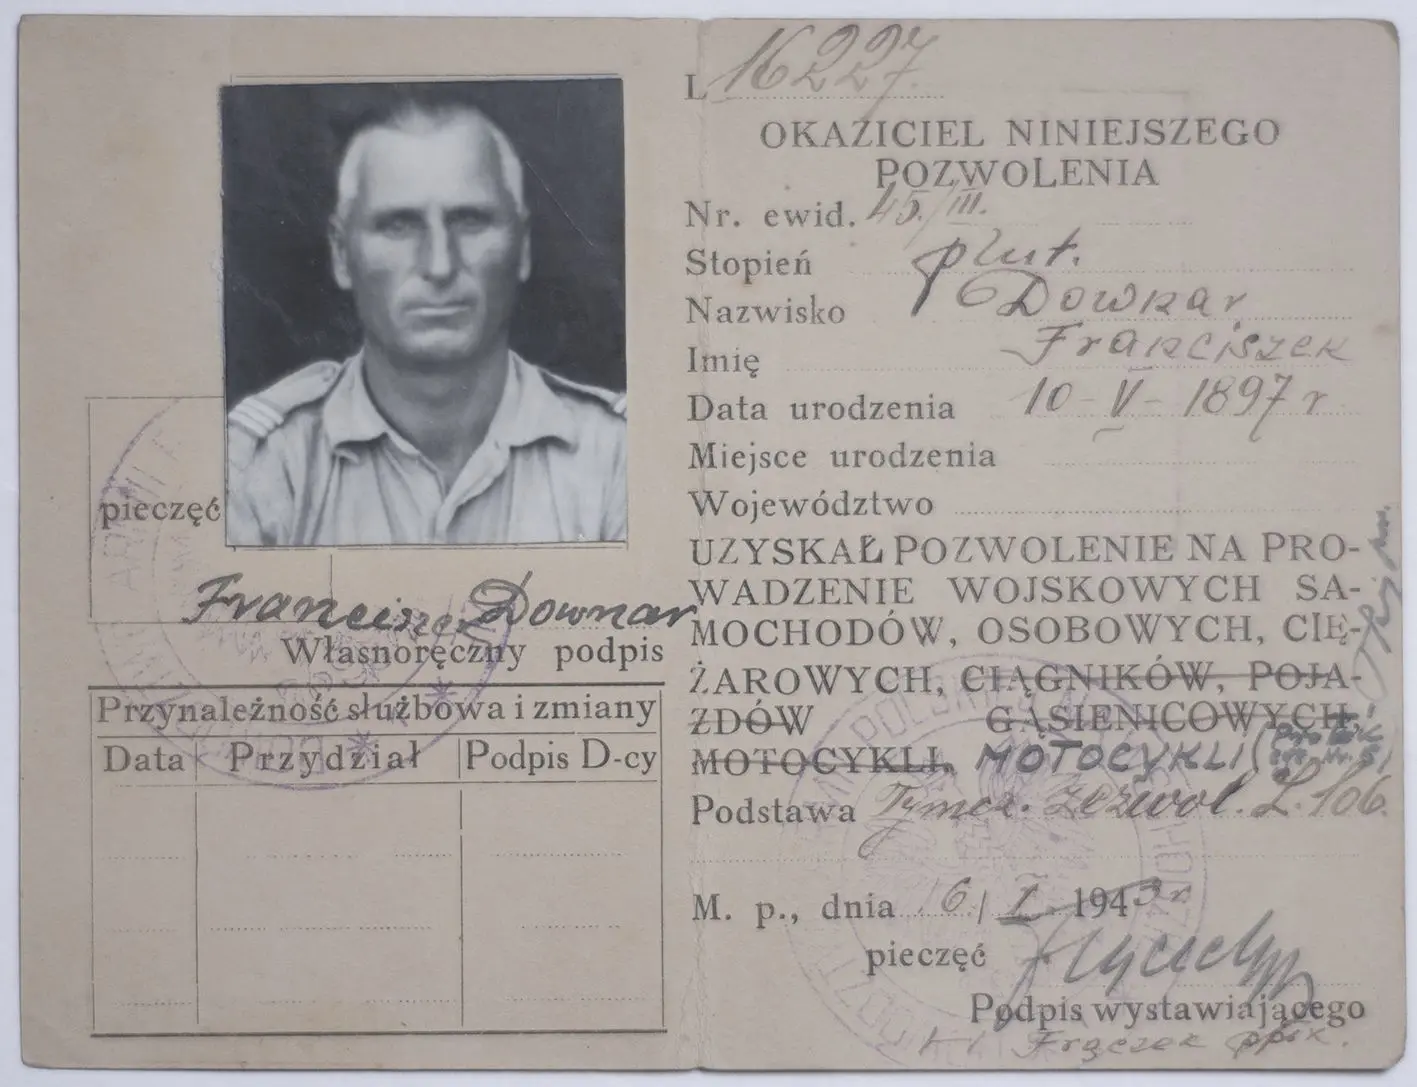 pieczęć
Franciszek Downar
Własnoręczny podpis
Przynależność służbowa i zmiany
Data Przydział Podpis D-cy
L 16227.
OKAZICIEL NINIEJSZEGO
POZWOLENIA
Nr. ewid. 45/III.
Stopień plut.
Nazwisko Downar
Imię Franciszek
Data urodzenia 10-V-1897 r
Miejsce urodzenia
Województwo
UZYSKAŁ POZWOLENIE NA PRO-
WADZENIE WOJSKOWYCH SA-
MOCHODÓW, OSOBOWYCH, CIĘ-
ŻAROWYCH, CIĄGNIKÓW, POJA-
ZDÓW GĄSIENICOWYCH,
MOTOCYKLI, MOTOCYKLI
Podstawa Tymcz. zezwol. L. 106.
M. p., dnia 6/I 1943 r
pieczęć
Podpis wystawiającego